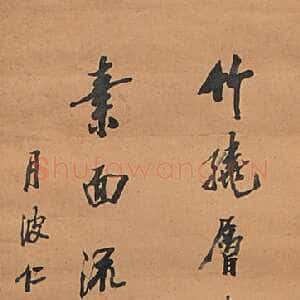 竹繞層
素面流
月波仁
ShufawangCN